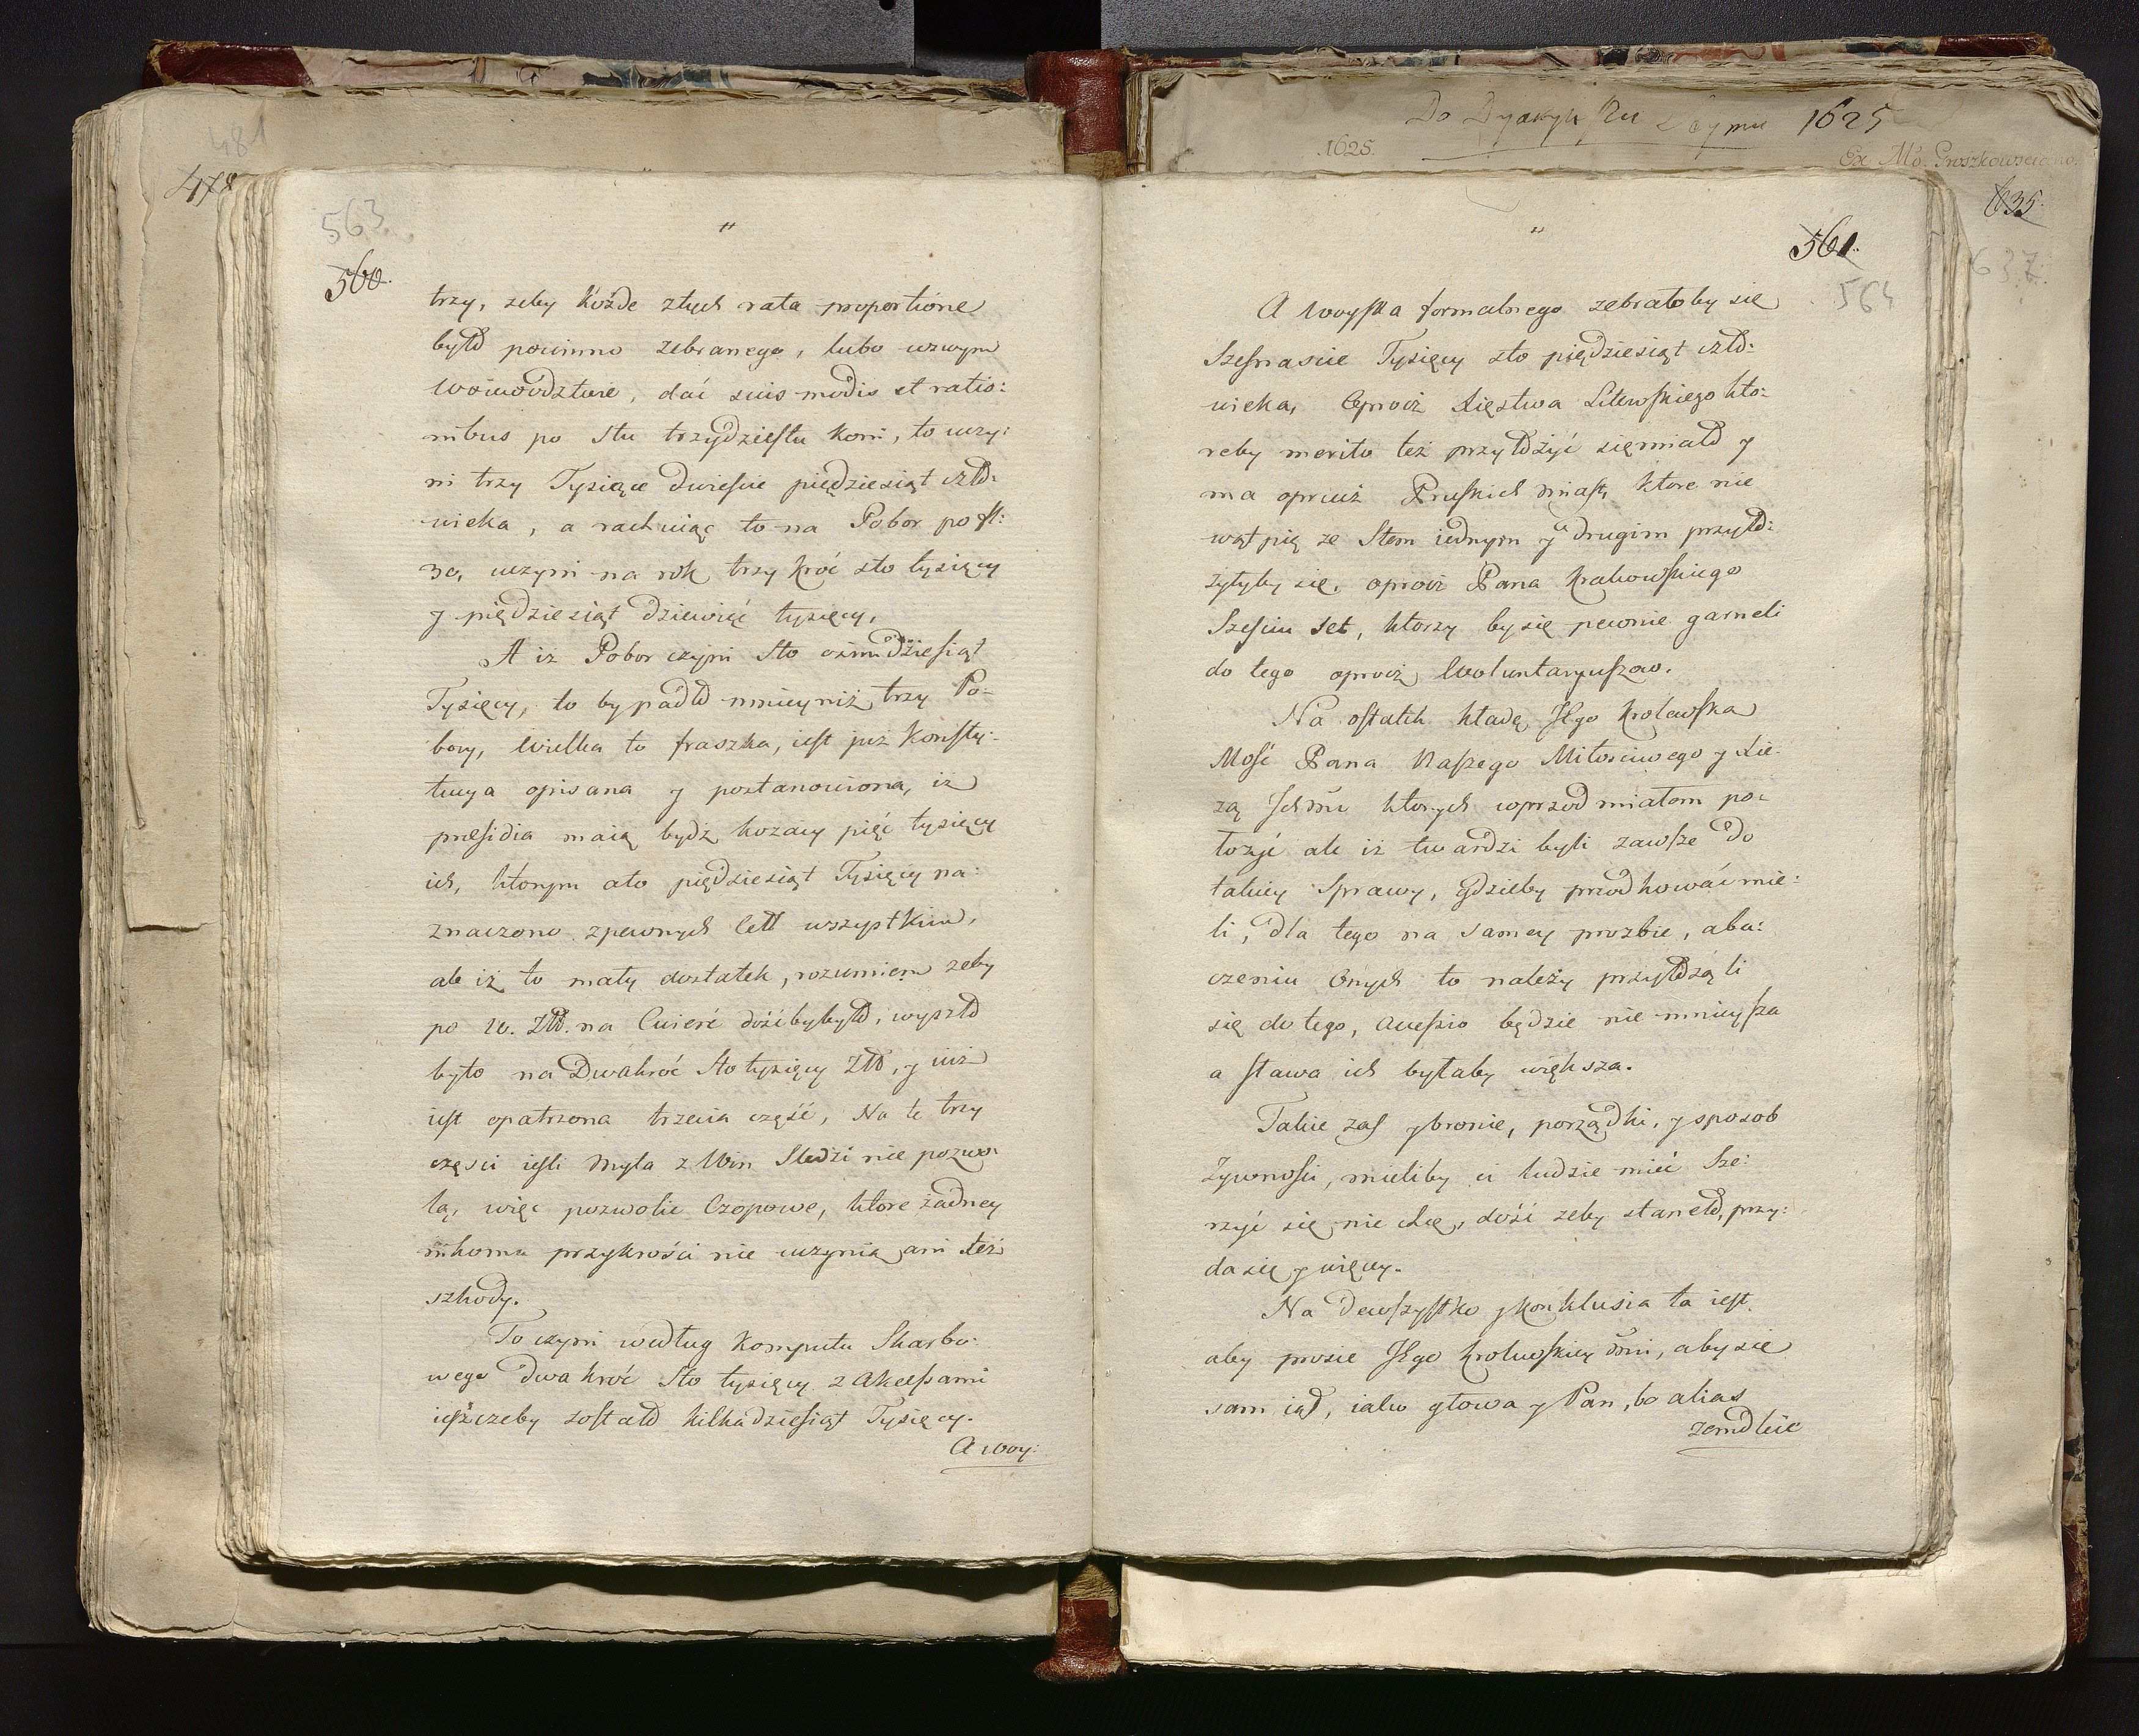 481
478
563
560.
"
trzy, zeby Kożde ztych rata proportione
było powinno zebranego, lubo wzwym
Woiewodztwie, dać suis modis et ratio:
nibus po Stu trzydziestu Koni, to uczy:
ni trzy Tysiące dwieście pięдziesiąt czło:
wieka, a rachuiąc to na Pobor po fl:
30, uczyni na rok trzy kroć sto tysięcy
y pięдziesiąt dziewięć tysięcy,
A iz Pobor czyni Sto ośmdziesiąt
Tysięcy, to by padło mniey niż trzy Po-
bory, Wielka to fraszka, iest już Konsty-
tucya opisana y postanowiona, iz
presidia maią bydz kozacy pięć tysięcy
ich, ktorym ato pięдziesiąt Tysięcy na:
znaczono zpewnych Cełł wszystkim,
ale iż to mały dostatek, rozumiem zeby
po 10. Złł. na Cwierć dość by było, wyszło
było na Dwakroć Sto tysięcy Złł, y iuż
iest opatrzona trzecia część, Na te trzy
częsci iesli Myta z Win Sledzi nie pozwo
lą, więc pozwolić Czopowe, ktore żadney
nikomu przykrości nie uczynią ani też
szkody.
To czyni według Komputu Skarbo:
wego Dwa kroć Sto tysięcy z Akcessami
ieszczeby zostało kilkadziesiąt Tysięcy.
A woy:
Do Dyaryuszu Seymu 1625
1625.
Ex Mo. Groszkowsciano.
635.
637
"
561.
564
A Woyska formalnego zebrałoby się
Szesnascie Tysięcy sto pięдziesiąt czło:
wieka, Oprocz Xięstwa Litewskiego kto:
reby merito też przyłożyć się miało y
ma oprucz Pruskich miast, ktore nie
wątpię ze Stem iednym y drugim przyło:
żyłyby się, oprocz Pana Krakowskiego
Szesciu set, ktorzy by się pewnie garneli
do tego oprocz Woluntaryuszow.
Na ostatek kładę JEgo Krolewska
Mość Pana Naszego Miłosciwego y Xie:
zą Jchmć ktorych wprzod miałem po:
łozyć ale iz twardzi byli zawsze do
takiey Sprawy, gdzieby przodkować mie:
li, dla tego na samey prozbie, a ba:
czeniu Onych to należy przyłożą li
się do tego, Auessio będzie nie mnieysza
a sława ich byłaby większa.
Takie zas y bronie, porządki, y sposob
Żywnosci, mieliby ci ludzie mieć Sze:
rzyć się nie chcę, dość zeby staneło, przy:
da się y więcey.
Na dewszystko y konklusia ta iest,
aby prosić JEgo Krolewskiey Mci, aby się
sam iął, iako głowa y Pan, bo alias
zemdleie